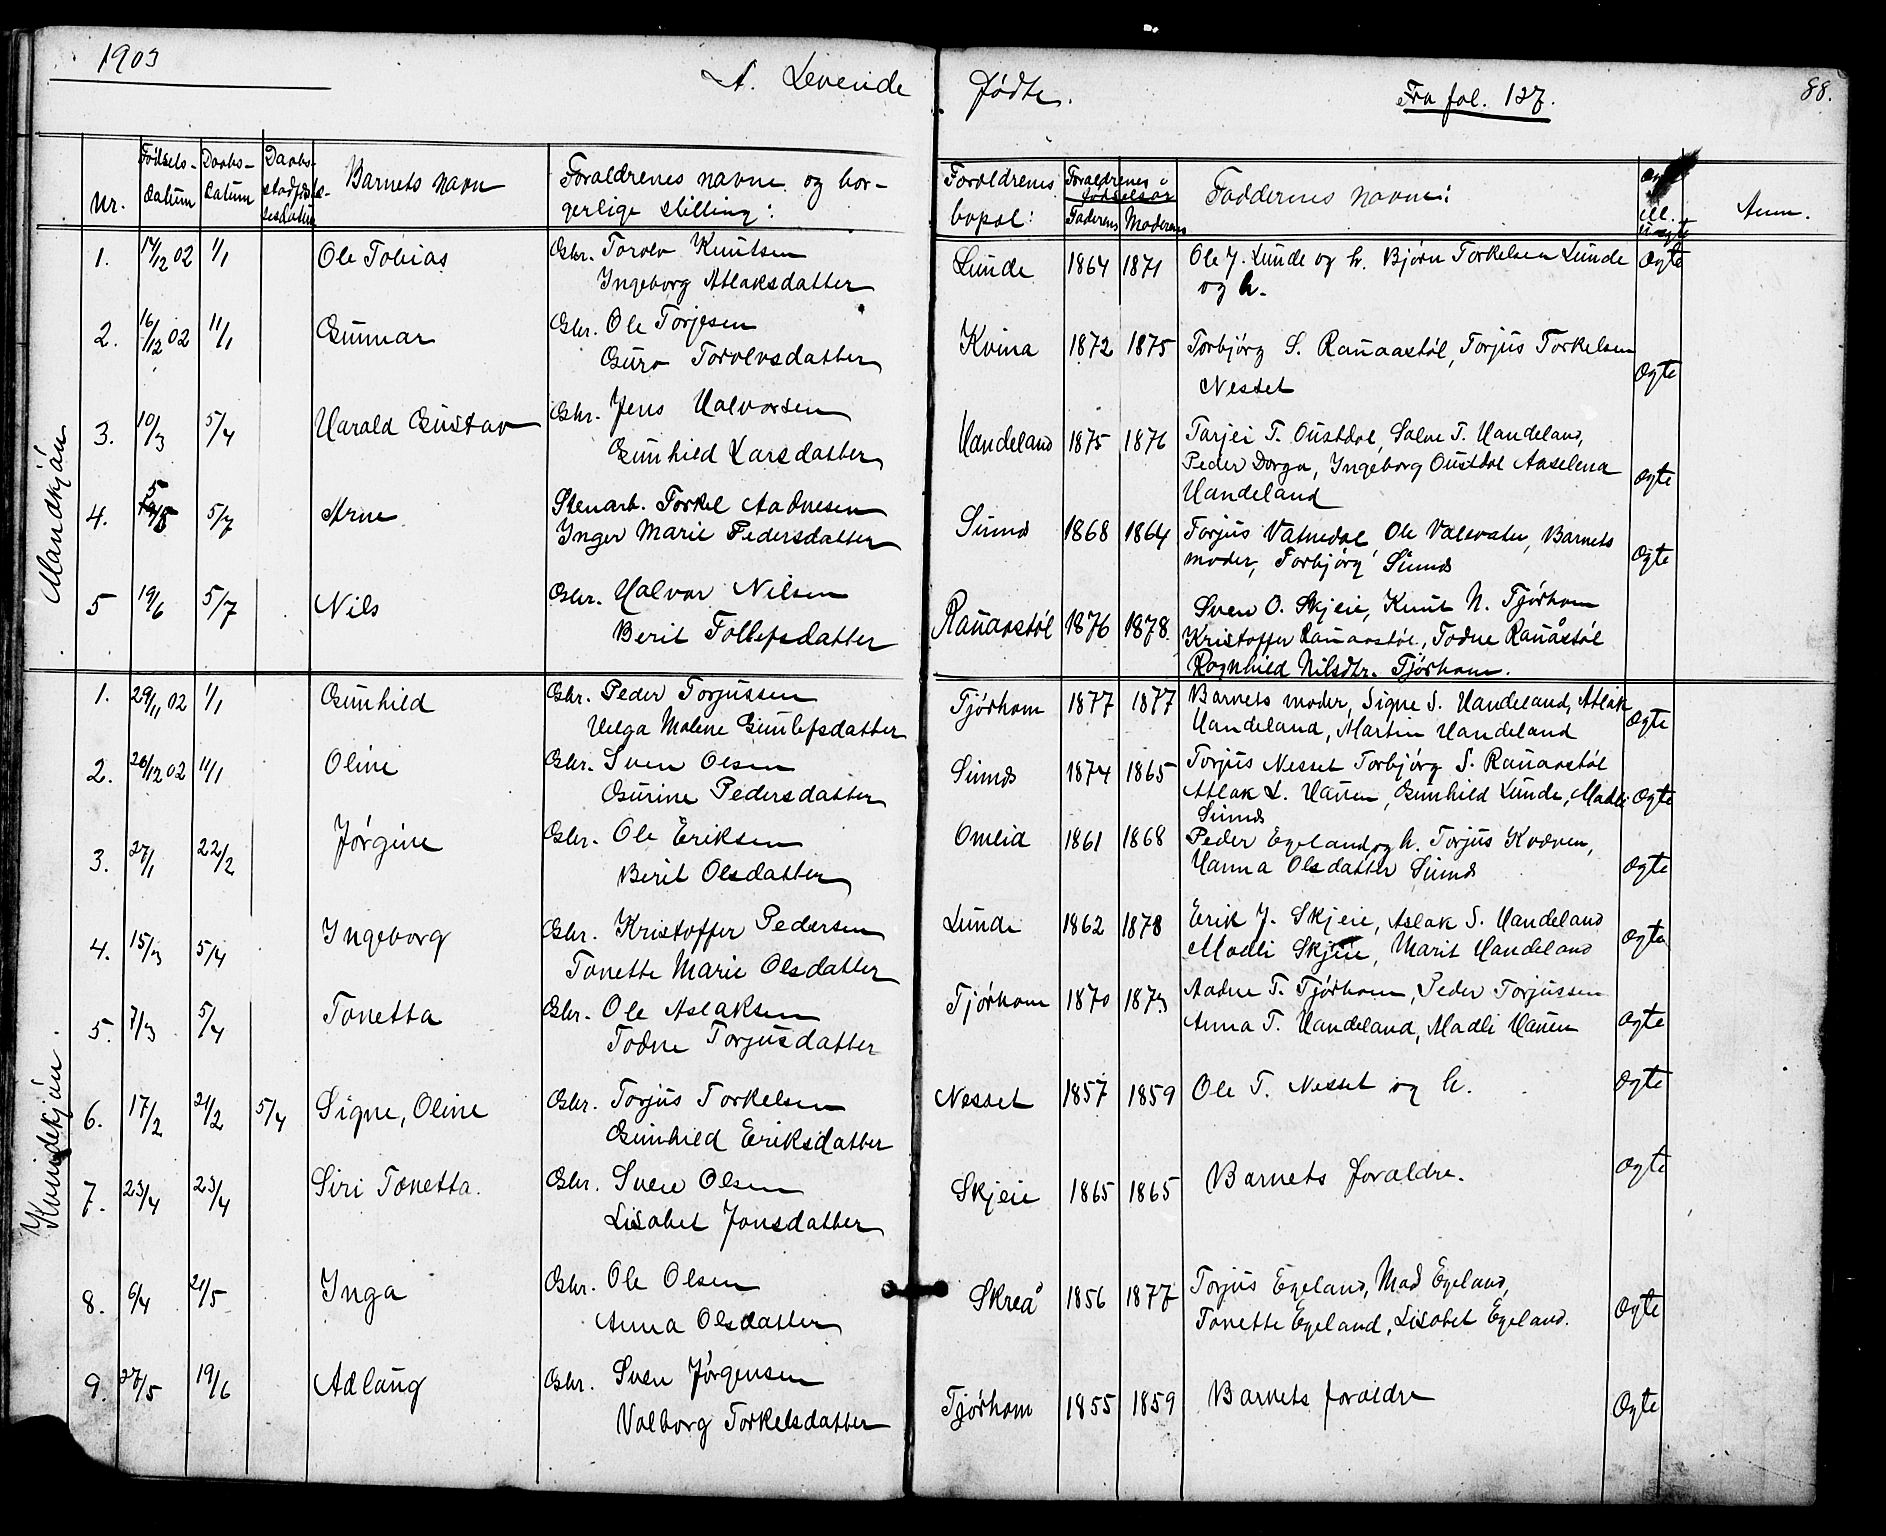 1903
A. Levende Fødte.
Fra fol. 127.
88.
Nr. | Fødsels-datum | Daabs-datum | Daabs-stadfæstelsesdatum | Barnets navn | Forældrenes navne og borgerlige stilling: | Forældrenes bopæl: | Forældrenes fødselsår Faderens | Moderens | Faddernes navne: | ell. uægte | Anm.
Mandkjøn
1. | 17/12 02 | 1/1 | Ole Tobias | Gbr. Torolv Knutsen | Lunde | 1864 | 1871 | Ole J. Lunde og h. Bjørn Torkelsen Lunde | Ægte
Ingeborg Atlaksdatter | og h.
2. | 16/12 02 | 11/1 | Gunnar | Gbr. Ole Torjesen | Kvina | 1872 | 1875 | Torbjørg S. Rauaastøl, Torjus Torkelsen | Ægte
Guro Torolvsdatter | Nesset
3. | 10/3 | 5/4 | Harald Gustav | Gbr. Jens Halvorsen | Handeland | 1875 | 1876 | Tarjei T. Oustdal, Salve T. Handeland, | Ægte
Gunhild Larsdatter | Peder Dorga, Ingeborg Oustdal Aaselena
Handeland
4. | 5/5 | 5/7 | Arne | Stenarb. Torkel Aadnesen | Sunds | 1868 | 1864 | Torjus Vatnedal Ole Valevatn, Barnets | Ægte
Inger Marie Pedersdatter | moder, Torbjørg Sunds
5 | 19/6 | 5/7 | Nils | Gbr. Halvor Nilsen | Rauaastøl | 1876 | 1878 | Sven O. Skjeie, Knut N. Tjørhom
Berit Tollefsdatter | Kristoffer Rauaastøl, Todne Rauåstøl
Ragnhild Nilsdtr. Tjørhom.
Kvindekjøn.
1. | 29/11 02 | 1/1 | Gunhild | Gbr. Peder Torjussen | Tjørhom | 1877 | 1877 | Barnets moder, Signe S. Handeland, Atlak | Ægte
Helga Malene Gunlefsdatter | Handeland, Martin Handeland
2. | 26/12 02 | 11/1 | Oline | Gbr. Sven Olsen | Sunds | 1874 | 1865 | Torjus Nesset Torbjørg S. Rauaastøl | Ægte
Gurine Pedersdatter | Atlak L. Hauen, Gunhild Lunde, Madli
Sunds
3. | 27/1 | 22/2 | Jørgine | Gbr. Ole Eriksen | Omlid | 1861 | 1868 | Peder Egeland og h. Torjus Kvæven, | Ægte
Berit Olsdatter | Hanna Olsdatter Sunds
4. | 15/3 | 5/4 | Ingeborg | Gbr. Kristoffer Pedersen | Lunde | 1862 | 1878 | Erik J. Skjeie, Aslak S. Handeland | Ægte
Tonette Marie Olsdatter | Madli Skjeie, Marit Handeland
5. | 7/3 | 5/4 | Tonetta | Gbr. Ole Aslaksen | Tjørhom | 1870 | 1873 | Aadne T. Tjørhom, Peder Torjussen | Ægte
Todne Torjusdatter | Anna T. Handeland, Madli Hauen
6. | 17/2 | 21/2 | 5/4 | Signe, Oline | Gbr. Torjus Torkelsen | Nesset | 1857 | 1859 | Ole T. Nesset og h. | Ægte
Gunhild Eriksdatter
7. | 23/4 | 23/4 | Siri Tonetta. | Gbr. Sven Olsen | Skjeie | 1865 | 1865 | Barnets forældre. | Ægte
Lisabet Jonsdatter
8. | 6/4 | 21/5 | Inga | Gbr. Ole Olsen | Skreå | 1856 | 1877 | Torjus Egeland, Mad Egeland, | Ægte
Anna Olsdatter | Tonette Egeland, Lisabet Egeland.
9. | 27/5 | 19/6 | Adlaug | Gbr. Sven Jørgensen | Tjørhom | 1855 | 1859 | Barnets forældre | Ægte
Valborg Torkelsdatter